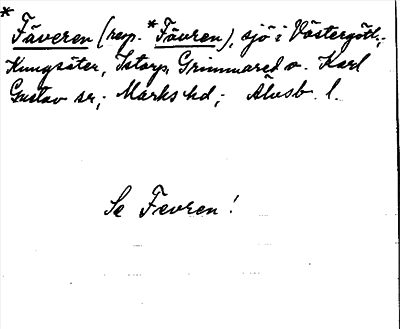 *Fäveren (resp. *Fävren), sjö i Västergötl.;
Kungsäter, Istorp, Grimmared o. Karl
Gustav sr,; Marks hd,; Älvsb. l.
Se Fævren!